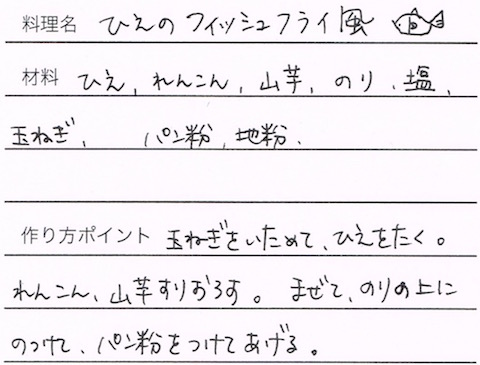 料理名 ひえのフィッシュフライ風
材料 ひえ、れんこん、山芋、のり、塩、
玉ねぎ、 パン粉、地粉、
作り方ポイント 玉ねぎをいためて、ひえをたく。
れんこん、山芋すりおろす。 まぜて、のりの上に
のっけて、パン粉をつけてあげる。